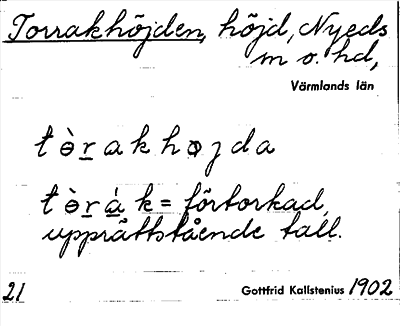 Torrakhöjden, höjd, Nyeds
m o. hd,
Värmlands län
tèrakhøjda
tèrák = förtorkad,
upprättstående tall.
21
Gottfrid Kallstenius 1902